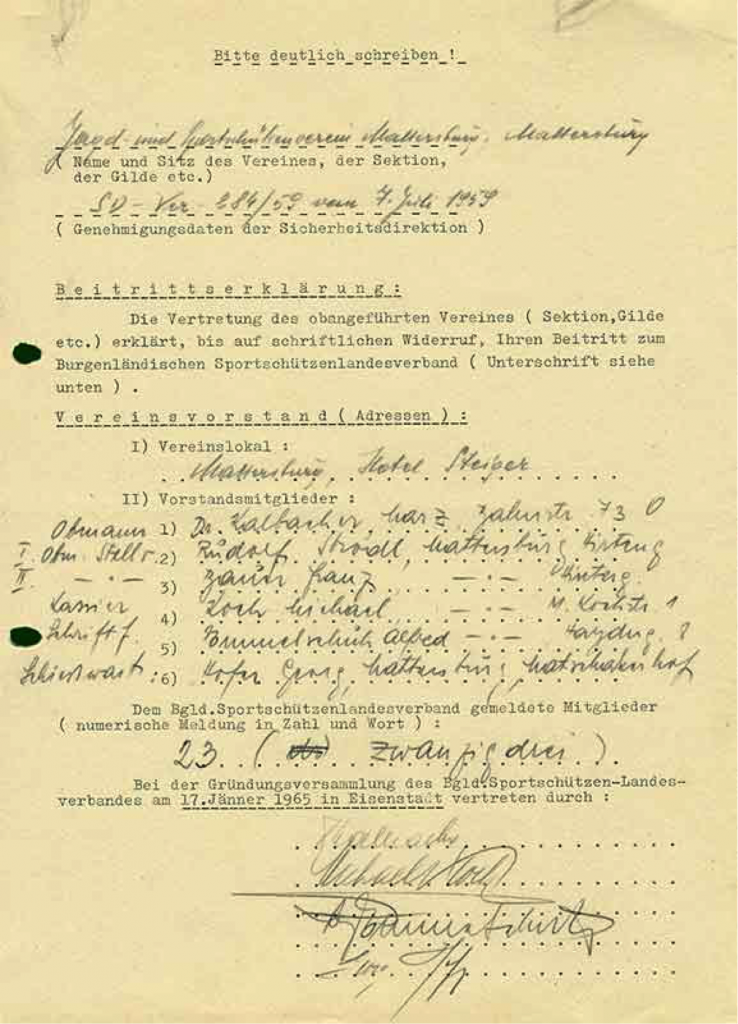 Bitte deutlich schreiben !
Jagd- und Sportschützenverein Mattersburg, Mattersburg
( Name und Sitz des Vereines, der Sektion,
der Gilde etc.)
SD - Ver - 284/59 vom 7. Juli 1959
( Genehmigungsdaten der Sicherheitsdirektion )
Beitrittserklärung:
Die Vertretung des obangeführten Vereines ( Sektion,Gilde
etc.) erklärt, bis auf schriftlichen Widerruf, Ihren Beitritt zum
Burgenländischen Sportschützenlandesverband ( Unterschrift siehe
unten ) .
Vereinsvorstand ( Adressen ) :
I) Vereinslokal :
Mattersburg, Hotel Steiger
II) Vorstandsmitglieder :
Obmann 1) Dr. Kalbacher, 73
I. Obm. Stellv. 2) Rudolf Strodl, Mattersburg
II. - " - 3) Franz - " -
Kassier 4) Koch Michael, - " - 1
Schriftf. 5) Alfred - " -
Schiesswart: 6) Hofer Georg, Mattersburg,
Dem Bgld.Sportschützenlandesverband gemeldete Mitglieder
( numerische Meldung in Zahl und Wort ) :
23 ( zwanzigdrei ).
Bei der Gründungsversammlung des Bgld.Sportschützen-Landes-
verbandes am 17.Jänner 1965 in Eisenstadt vertreten durch :
Kalbacher
Michael Koch